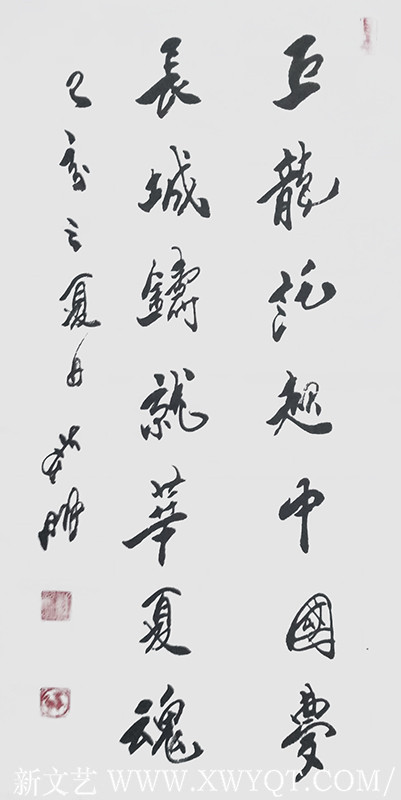 巨龍托起中國夢
長城鑄就華夏魂
己亥之夏月
新文艺 WWW.XWYQT.COM/